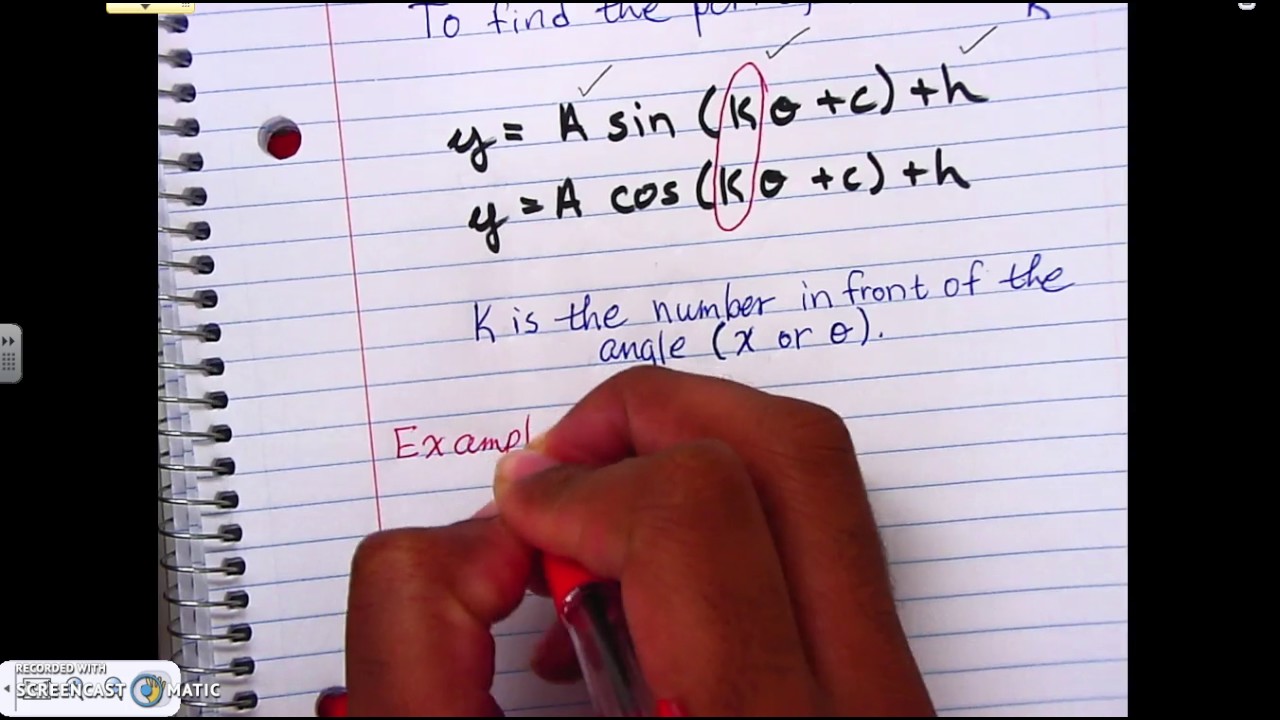 To find the
K
y = A sin (Kθ + c) + h
y = A cos (Kθ + c) + h
K is the number in front of the
angle (x or θ).
Exampl
RECORDED WITH
SCREENCAST MATIC